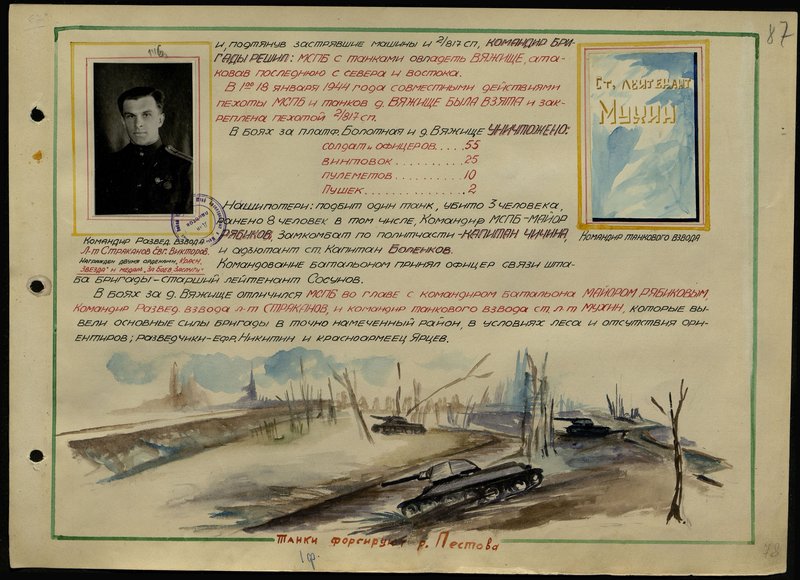 87
и, подтянув застрявшие машины и 2/817 сп, командир бри-
гады решил: МСПБ с танками овладеть ВЯЖИЩЕ, ата-
ковав последнюю с севера и востока.
В 1⁰⁰ 18 января 1944 года совместными действиями
пехоты МСПБ и танков д. ВЯЖИЩЕ БЫЛА ВЗЯТА и зак-
реплена пехотой 2/817 сп.
В боях за платф. Болотная и д. Вяжище УНИЧТОЖЕНО:
солдат и офицеров.... 55
винтовок.......... 25
пулеметов.......... 10
Пушек............. 2
Ст. лейтенант
Мухин
Наши потери: подбит один танк, убито 3 человека,
ранено 8 человек в том числе, Командир МСПБ-МАЙОР
РЯБИКОВ, Замкомбат по политчасти-КАПИТАН ЧИЧИНА,
и адъютант ст. Капитан Боленков.
Командир Развед. Взвода
Л-т Страканов Евг. Викторов.
Награжден двумя орденами, "Красн.
Звезда" и медал. "За Боев Заслуги"
Командир танкового взвода
Командование батальоном принял офицер связи шта-
ба бригады-старший лейтенант Сосунов.
В боях за д. Вяжище отличился МСПБ во главе с командиром батальона МАЙОРОМ РЯБИКОВЫМ,
Командир Развед. взвода л-т СТРАКАНОВ, и командир танкового взвода ст. л-т МУХИН, которые вы-
вели основные силы бригады в точно намеченный район, в условиях леса и отсутствия ори-
ентиров; разведчики-ефр. Никитин и красноармеец Ярцев.
Танки форсируют р. Пестова
1ф.
78